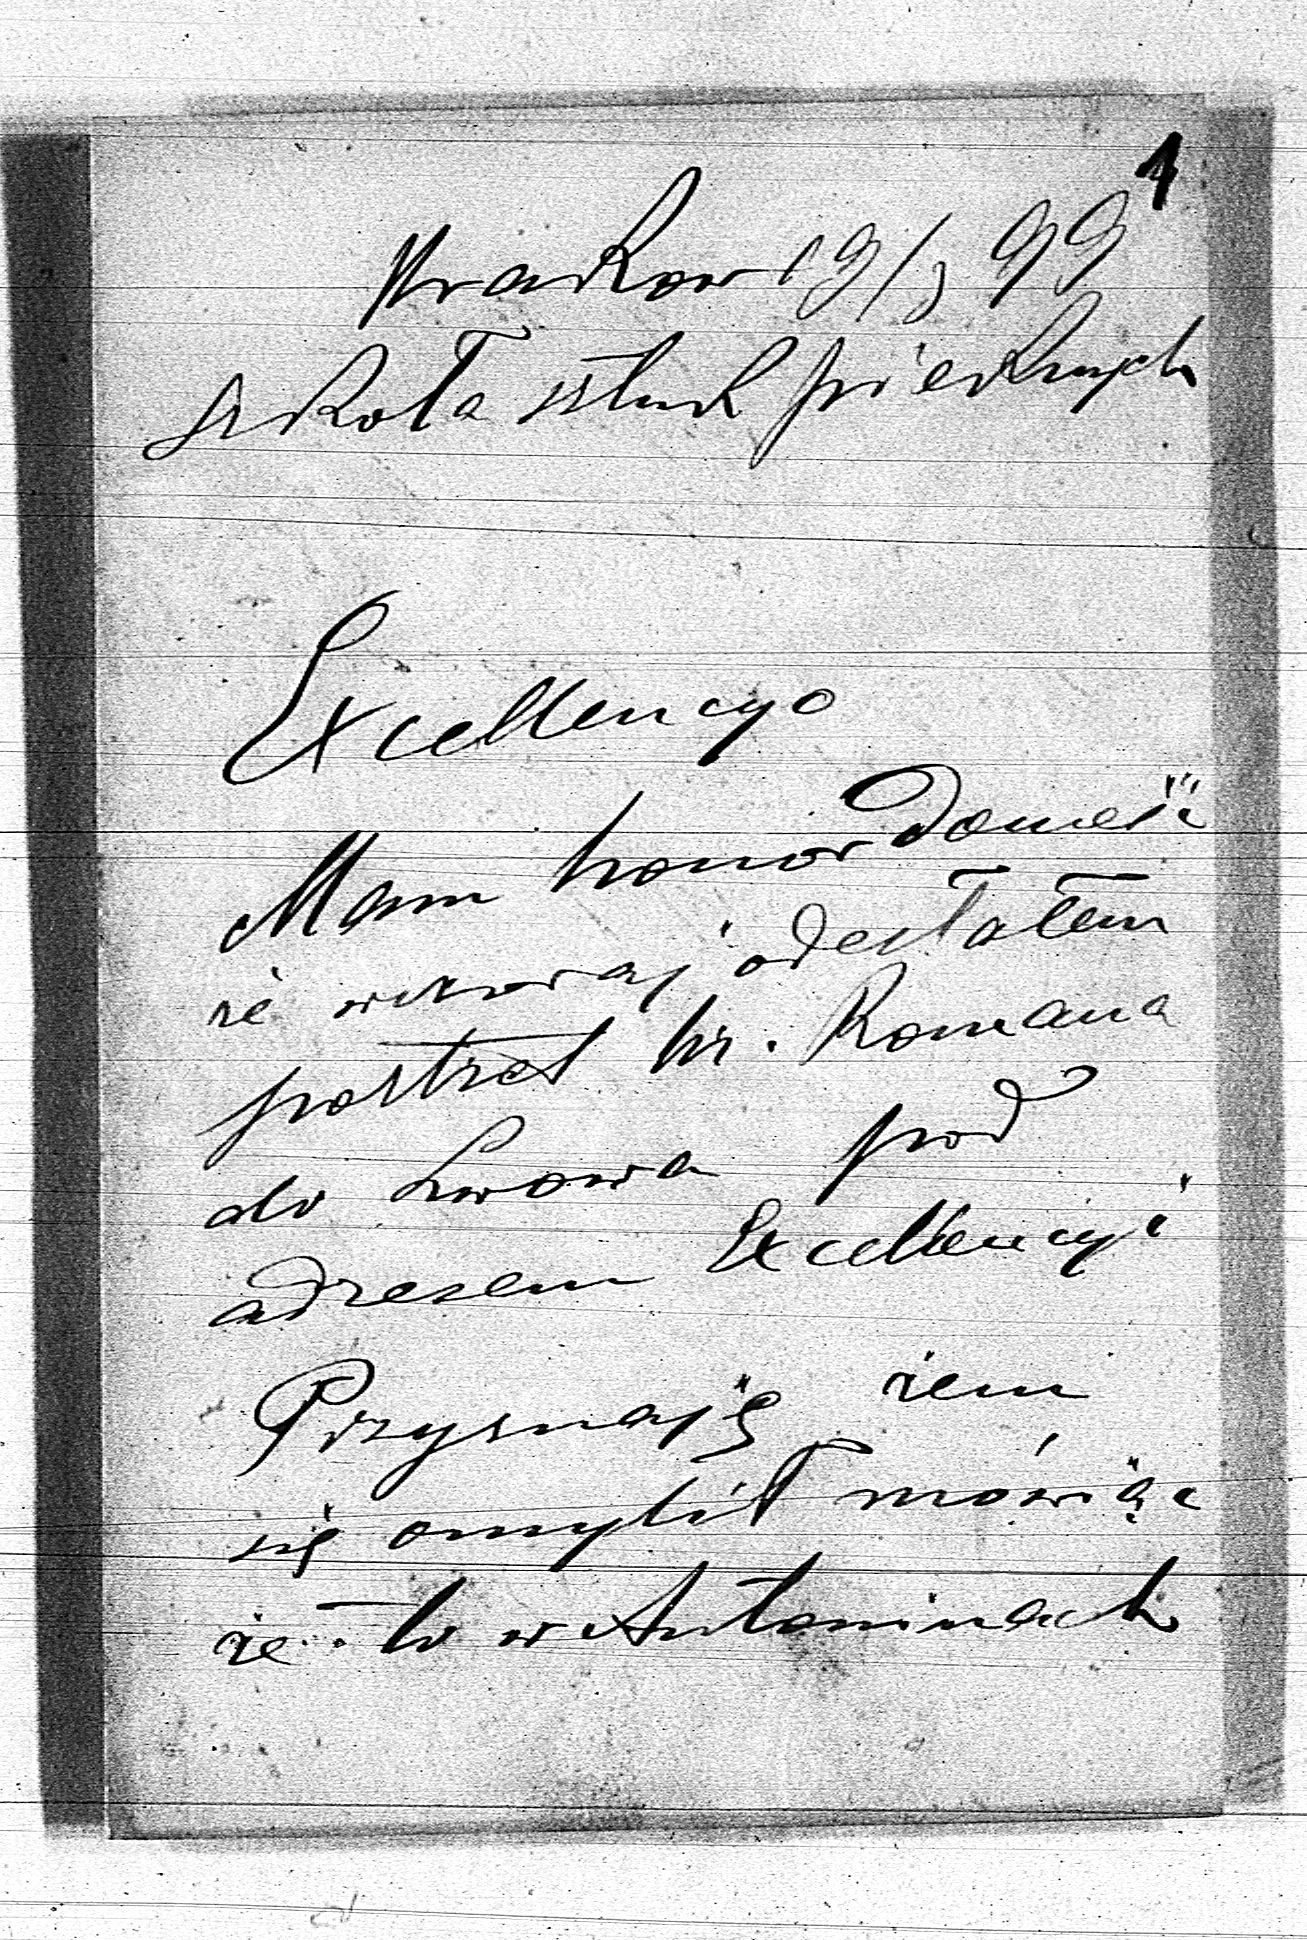 1
Krakow 19/3 99
Szkoła sztuk pieknych
Excellencyo
Mam honor donieść
że wczoraj odesłałem
portret hr. Romana
do Lwowa pod
adresem Excellencyi
Przyznaję żem
się omylił mówiąc
że to w Antoninach